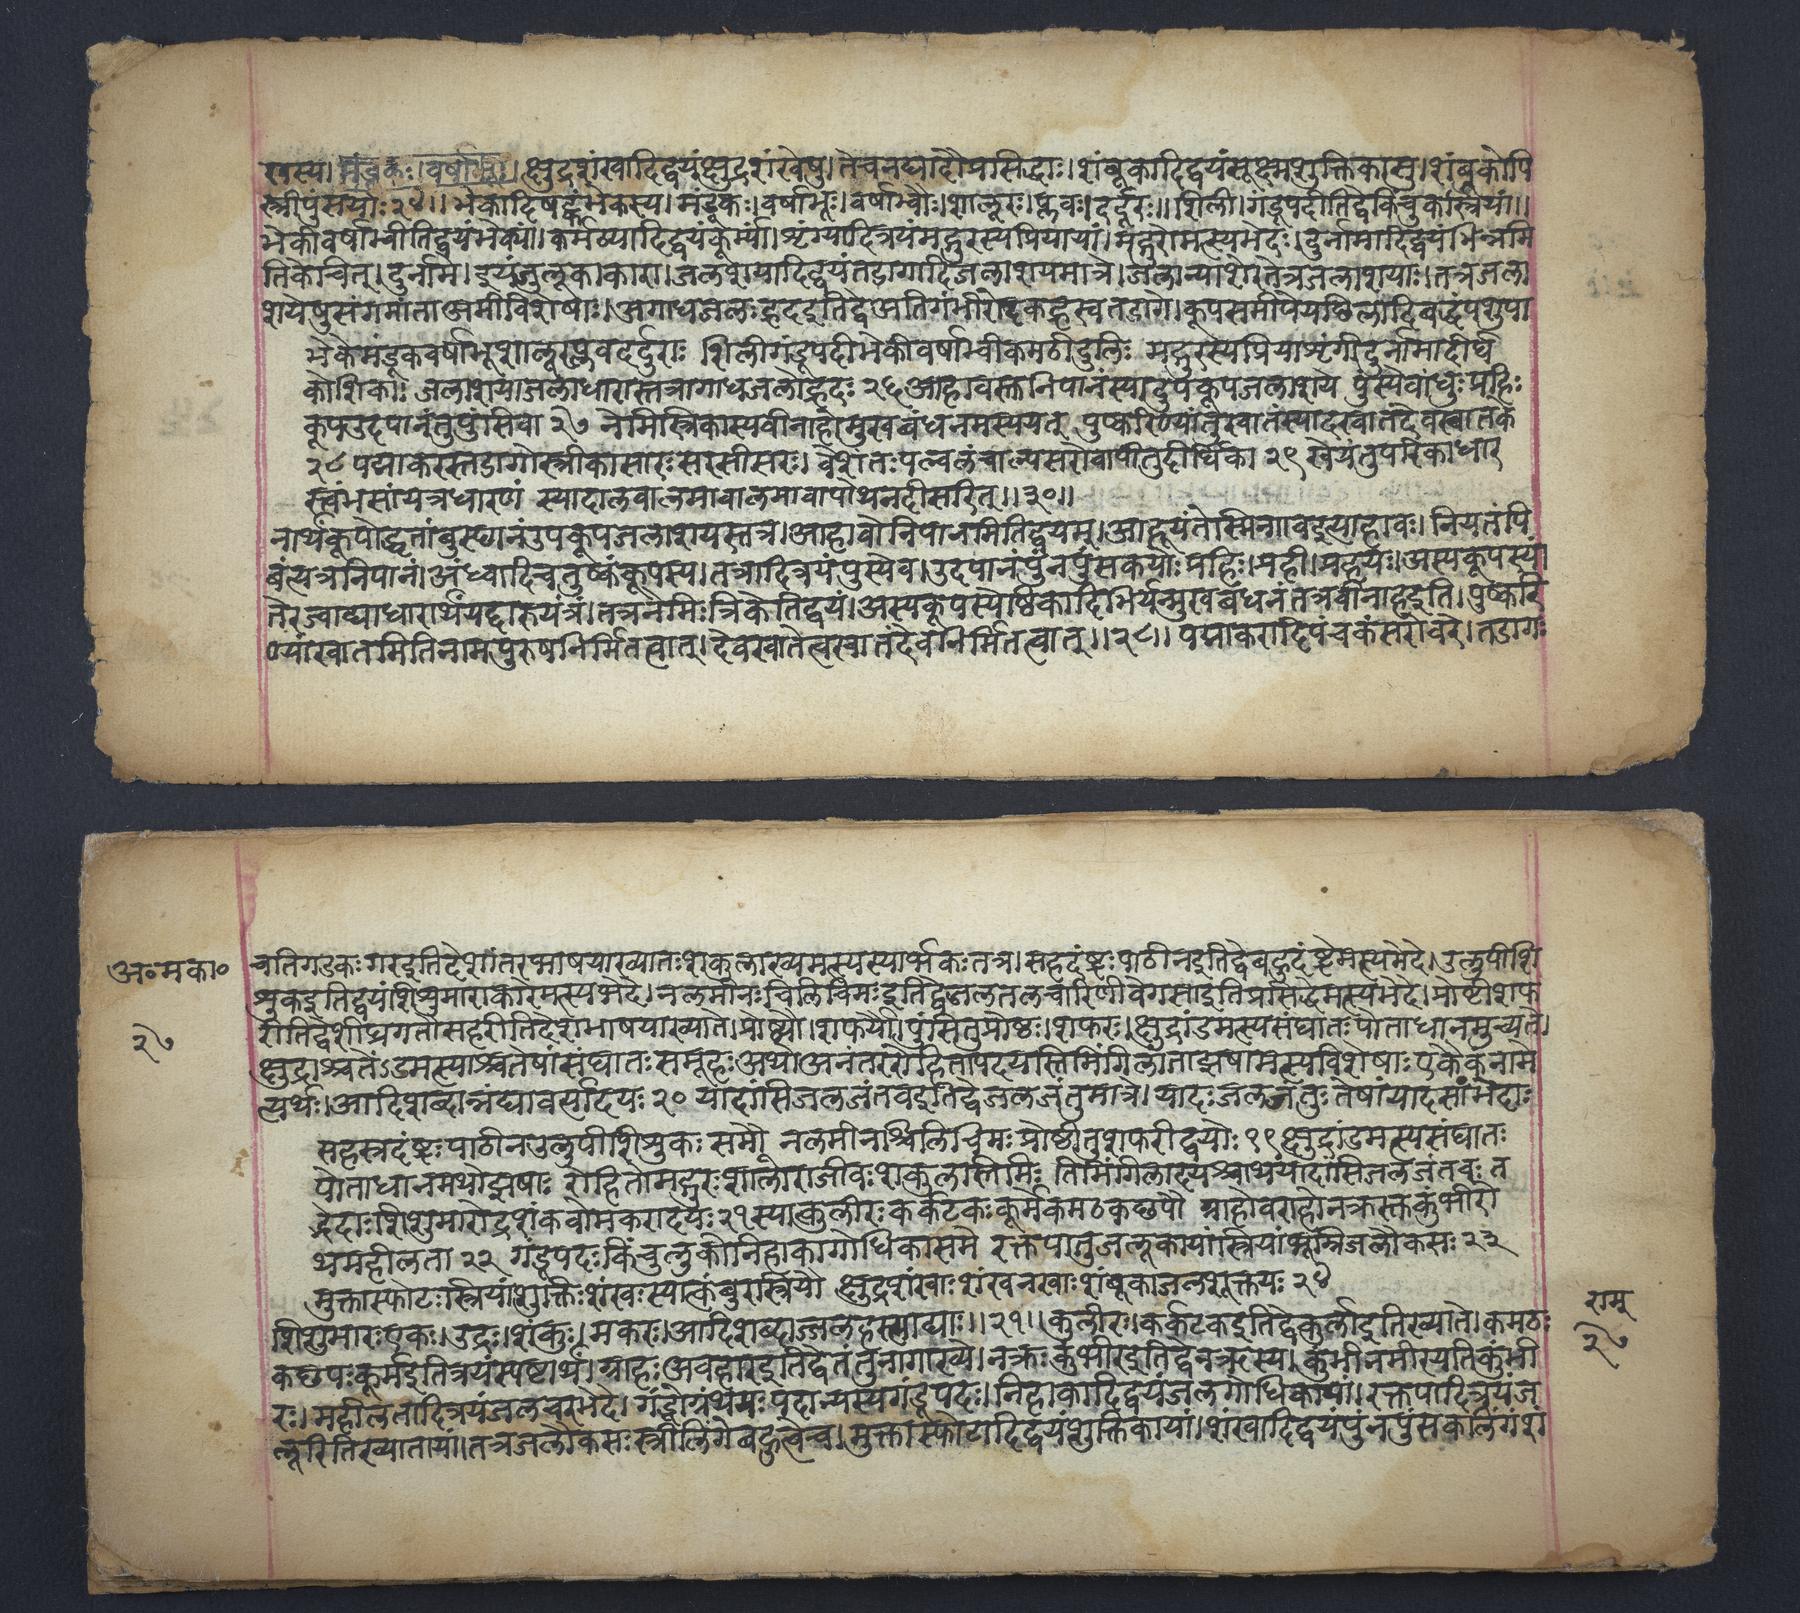 खस्य। मंडूकः।वर्षाभूः। क्षुद्रशंखादिद्वयंक्षुद्रशंखेषु। तेचनद्यादौप्रासिद्धाः।शंबूकादिद्वयंसूक्ष्मशुक्तिकासु।शंबूकोपि
स्त्रीपुंसयोः२४।।भेकादिषट्कंभेकस्य।मंडूकः।वर्षाभूः।वर्षाभ्वौः।शालूरः।प्लवः।दर्दूरः॥शिली।गंडूपदीतिद्वेकिंचुकस्त्रियां।।
भेकीवर्षाभ्वीतिद्वयंभेक्यां।कर्मठ्यादिद्वयंकूर्म्यां।शृंग्यादित्रयंमद्गुरस्यप्रियायां।मद्गुरोमत्स्यभेदः।दुर्नामादिद्वयंभिन्नमि
तिकेचित्।दुर्नाम।इयंजुलूकाकारा।जलाशयादिद्वयंतडागादिजलाशयमात्रे।जलान्याशेरतेत्रजलाशयाः।तत्रजला
शयेषुसंगमांताअमीविशेषाः।अगाधजलःह्रदइतिद्वेअतिगंभीरोदकह्रस्वतडागे।कूपसमीपेयच्छिलादिबद्धंपशुपा
भेकेमंडूकवर्षाभूशालूरप्लवदर्दुराः शिलीगंडूपदीभेकीवर्षाभ्वीकमठीडुलिः मद्गुरस्यप्रियाशृंगीदुर्नामादीर्घ
कोशिका। जलाशयाजलाधारास्तत्रागाधजलोह्रदः २६आहावस्तुनिपानंस्यादुपकूपजलाशये पुंस्येवांधुःप्रहिः
कूपउदपानंतुपुंसिवा २७ नेमिस्त्रिकास्यवीनाहोमुखबंधनमस्ययत् पुष्करिण्यांतुखातंस्यादखातंदेवखातकं
२८ पद्माकरस्तडागोस्त्रीकासारःसरसीसरः। वेशंतःपल्वलंचाल्पसरोवापीतुदीर्घिका २९ खेयंतुपरिकाधार
स्त्वंभसांयत्रधारणं स्यादालवालमावालमावापोथनदीसरित्।।३०।।
नार्थंकूपोद्धृतांबुस्थानंउपकूपजलाशयस्तत्र।आहावोनिपानमितिद्वयम्।आहूयंतेस्मिन्गावइत्याहावः।नियतंपि
बंत्यत्रनिपानं।अंध्वादिचतुष्कंकूपस्य।तत्रादित्रयंपुंस्येव।उदपानंपुंनपुंसकयोःप्रहिः।प्रही।प्रहयः।अस्यकूपस्यां
तेरज्वाद्याधारार्थंयद्दारुयंत्रं।तत्रनेमिःत्रिकेतिद्वयं।अस्यकूपस्येष्टिकादिभिर्यन्मुखबंधनंतत्रवीनाहइति।पुष्करि
ण्यांखातमितिनामपुरुषनिर्मितत्वात्।देवखातेत्वखातंदेवनिर्मितत्वात्।।२८।। पद्माकरादिपंचकंसरोवरे।तडागः
अ॰मका॰
२७
चतिगडकःगरइतिदेशांतरभाषयाख्यातःशकुलाख्यमत्स्यस्यार्भकःतत्र।सहदंष्ट्रःपाठीनइतिद्वेबहुदंष्ट्रेमत्स्यभेदे।उलुपीशि
शुकइतिद्वयंशिशुमाराकारमत्स्यभेदे।नलमीनःचिलिचिमःइतिद्वेजलतलचारिणीवेगसाइतिप्रसिद्धेमत्स्यभेदे।प्रोष्ठीशफ
रीतिद्वेशीघ्रगतौसहरीतिदेशभाषयाख्याते।प्रोष्ठ्यौ।शफर्यौ।पुंसितुप्रोष्ठः।शफरः।क्षुद्रांडमत्स्यसंघातःपोताधानमुच्यते।
क्षुद्राश्चतेऽडमत्स्याश्चतेषांसंघातःसमूहःअथोअनंतरंरोहितापदयस्तिमिंगिलांताझषामत्स्यविशेषाःएकैकनामे
त्यर्थः।आदिशब्दान्नंद्यावर्त्तादयः २० यादांसिजलजंतवइतिद्वेजलजंतुमात्रे।यादःजलजंतुःतेषांयादसांभेदाः
सहस्त्रदंष्ट्रःपाठीनउलुपीशिशुकःसमौ नलमीनश्चिलिचिमःप्रोष्ठीतुशफरीद्वयोः १९ क्षुद्रांडमत्स्यसंघातः
पोताधानमथोझषाः रोहितोमद्गुरःशालोराजीवःशकुलस्तिमिः तिमिंगिलादयश्चाथयादांसिजलजंतवः त
द्भेदाःशिशुमारोद्रशंकवोमकरादयः२१स्यात्कुलीरःकर्कटकःकूर्मेकमठकछपौ ग्राहोवराहोनक्रस्तुकुंभीरो
थमहीलता २२ गंडूपदःकिंचुलुकोनिहाकागोधिकासमे रक्तपातुजलूकायांस्त्रियांभूम्निजलौकसः २३
मुक्तास्फोटःस्त्रियांशुक्तिःशंखःस्यात्कंबुरस्त्रियौ क्षुद्रशंखाःशंखनखाःशंबूकाजलशुक्तयः २४
शिशुमारःएकः।उद्रः।शंकुः।मकरः।आदिशब्दाज्जलहस्त्याद्याः।।२१।।कुलीरः।कर्कटकइतिद्वेकुर्लीइतिख्याते।कमठः
कछपःकूर्मइतित्रयंस्पष्टार्थं।ग्राहःअवहारइतिद्वेतंतुनागाख्ये।नक्रःकुंभीरइतिद्वेनक्रस्य।कुंभीनमीरयतिकुंभी
रः।महीलतादित्रयंजलचरभेदे।गंडूोग्रंथयःपदान्यस्यगंडूपदः।निहाकादिद्वयंजलगोधिकायां।रक्तपादित्रयंज
लूरितिख्यातायां।तत्रजलौकसःस्त्रीलिंगेबहुत्वेच।मुक्तास्फोटादिद्वयंशुक्तिकायां।शंखादिद्वयंपुंनपुंसकलिंगंशं
राम
२७